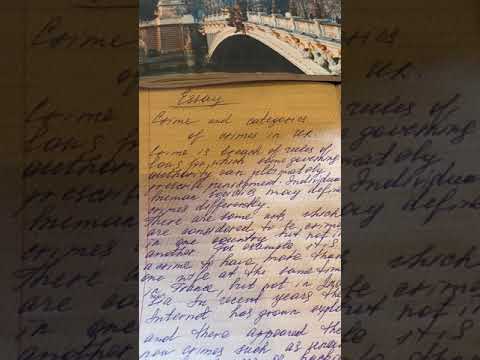 Essay
Crime and categories
of crimes in UK.
Crime is breach of rules of
laws for which some governing
authority can ultimately
prescribe punishment. Individual
human societies may define
crimes differently.
There are some acts which
are considered to be crime
in one country but not in
another. For example it is
a crime to have more than
one wife at the same time
in France but not in
In recent years the
Internet has grown
and there appeared the
new crimes such as